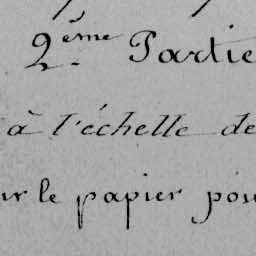 2.ème Partie
à l'échelle de
ur le papier pou